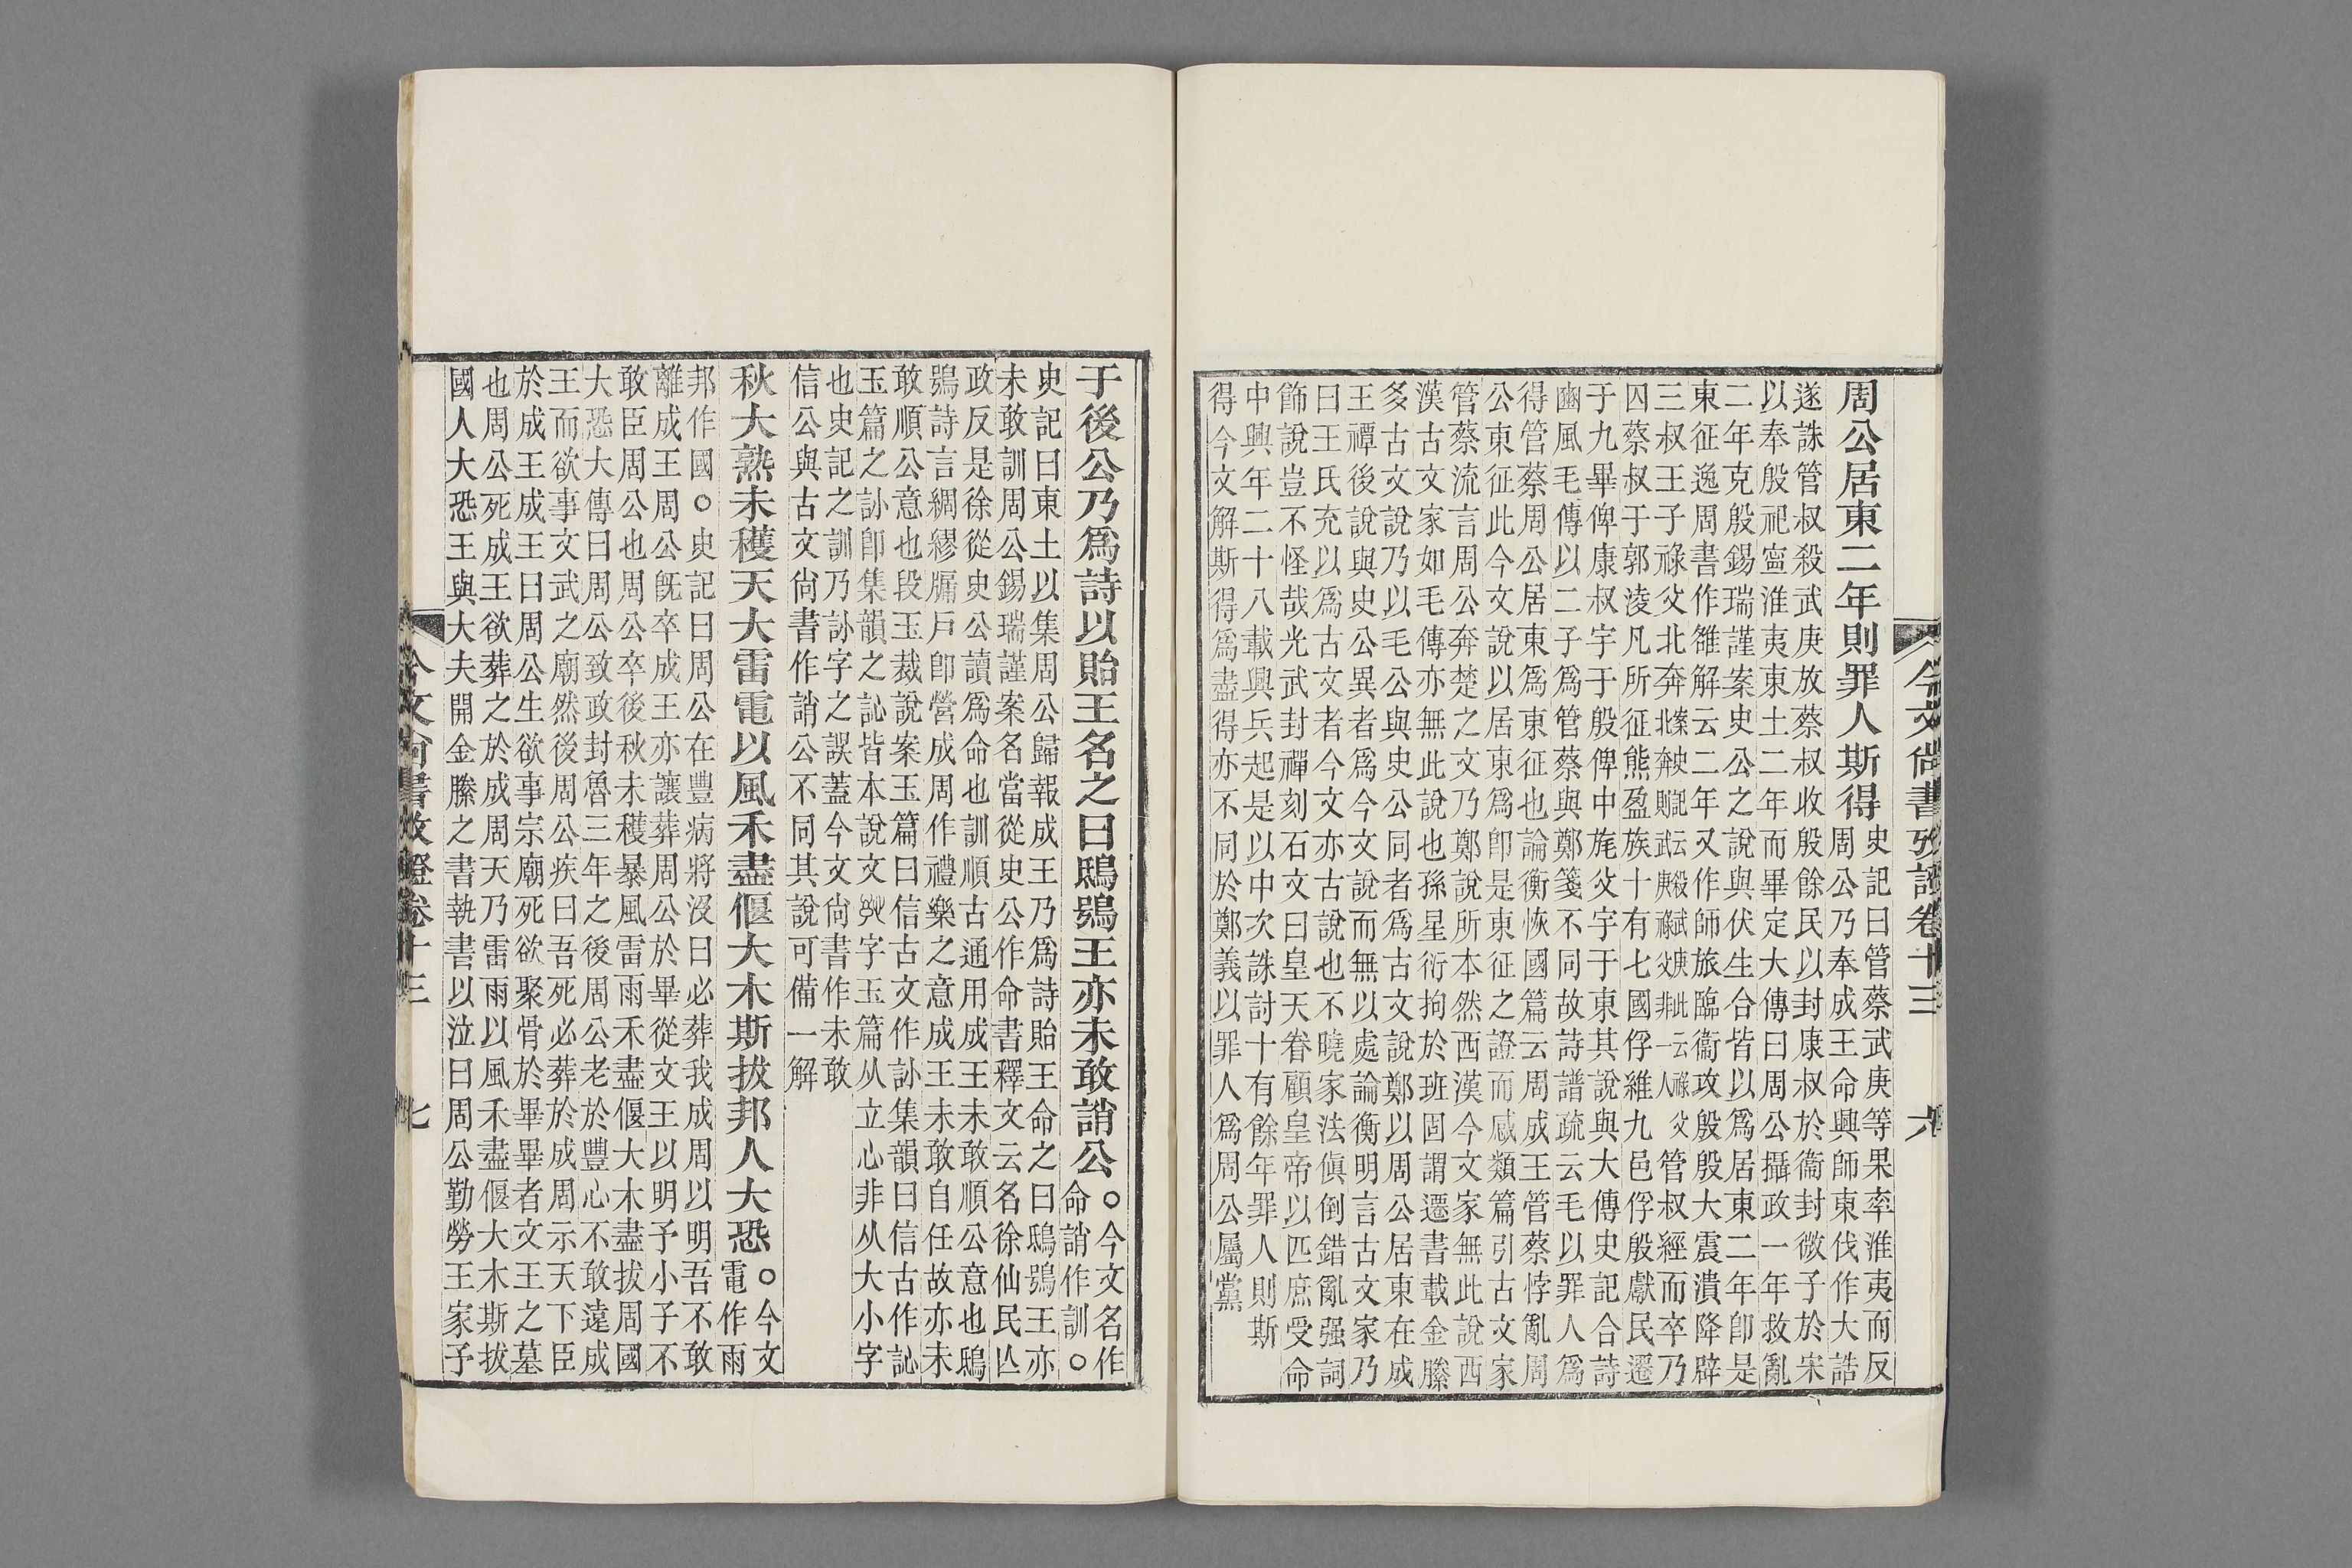 今文尚書攷證卷十三
六
周公居東二年則罪人斯得
史記曰管蔡武庚等果率淮夷而反
周公乃奉成王命興師東伐作大誥
遂誅管叔殺武庚放蔡叔收殷餘民以封康叔於衞封微子於宋
以奉殷祀寍淮夷東土二年而畢定大傳曰周公攝政一年救亂
二年克殷錫瑞謹案史公之說與伏生合皆以爲居東二年卽是
東征逸周書作雒解云二年又作師旅臨衞攻殷殷大震潰降辟
三叔王子祿父北奔
管叔經而卒乃
囚蔡叔于郭淩凡所征熊盈族十有七國俘維九邑俘殷獻民遷
于九畢俾康叔宇于殷俾中旄父宇于東其說與大傳史記合詩
豳風毛傳以二子爲管蔡與鄭箋不同故詩譜疏云毛以罪人爲
得管蔡周公居東爲東征也論衡恢國篇云周成王管蔡悖亂周
公東征此今文說以居東爲卽是東征之證而感類篇引古文家
管蔡流言周公奔楚之文乃鄭說所本然西漢今文家無此說西
漢古文家如毛傳亦無此說也孫星衍拘於班固謂遷書載金縢
多古文說乃以毛公與史公同者爲古文說鄭以周公居東在成
王禫後說與史公異者爲今文說而無以處論衡明言古文家乃
曰王氏充以爲古文者今文亦古說也不曉家法傎倒錯亂强詞
飾說豈不怪哉光武封禪刻石文曰皇天眷顧皇帝以匹庶受命
中興年二十八載興兵起是以中次誅討十有餘年罪人則斯
得今文解斯得爲盡得亦不同於鄭義以罪人爲周公屬黨
于後公乃爲詩以貽王名之曰鴟鴞王亦未敢誚公
○今文名作
命誚作訓○
史記曰東土以集周公歸報成王乃爲詩貽王命之曰鴟鴞王亦
未敢訓周公錫瑞謹案名當從史公作命書釋文云名徐仙民亾
政反是徐從史公讀爲命也訓順古通用成王未敢順公意也鴟
鴞詩言綢繆牖戶卽營成周作禮樂之意成王未敢自任故亦未
敢順公意也段玉裁說案玉篇曰信古文作訫集韻曰信古作訫
玉篇之訫卽集韻之訫皆本說文㐰字玉篇从立心非从大小字
也史記之訓乃訫字之誤蓋今文尚書作未敢
信公與古文尚書作誚公不同其說可備一解
秋大熟未穫天大雷電以風禾盡偃大木斯拔邦人大恐
○今文
電作雨
邦作國○史記曰周公在豐病將沒曰必葬我成周以明吾不敢
離成王周公旣卒成王亦讓葬周公於畢從文王以明予小子不
敢臣周公也周公卒後秋未穫暴風雷雨禾盡偃大木盡拔周國
大恐大傳曰周公致政封魯三年之後周公老於豐心不敢遠成
王而欲事文武之廟然後周公疾曰吾死必葬於成周示天下臣
於成王成王曰周公生欲事宗廟死欲聚骨於畢畢者文王之墓
也周公死成王欲葬之於成周天乃雷雨以風禾盡偃大木斯拔
國人大恐王與大夫開金縢之書執書以泣曰周公勤勞王家予
今文尚書攷證卷十三
七